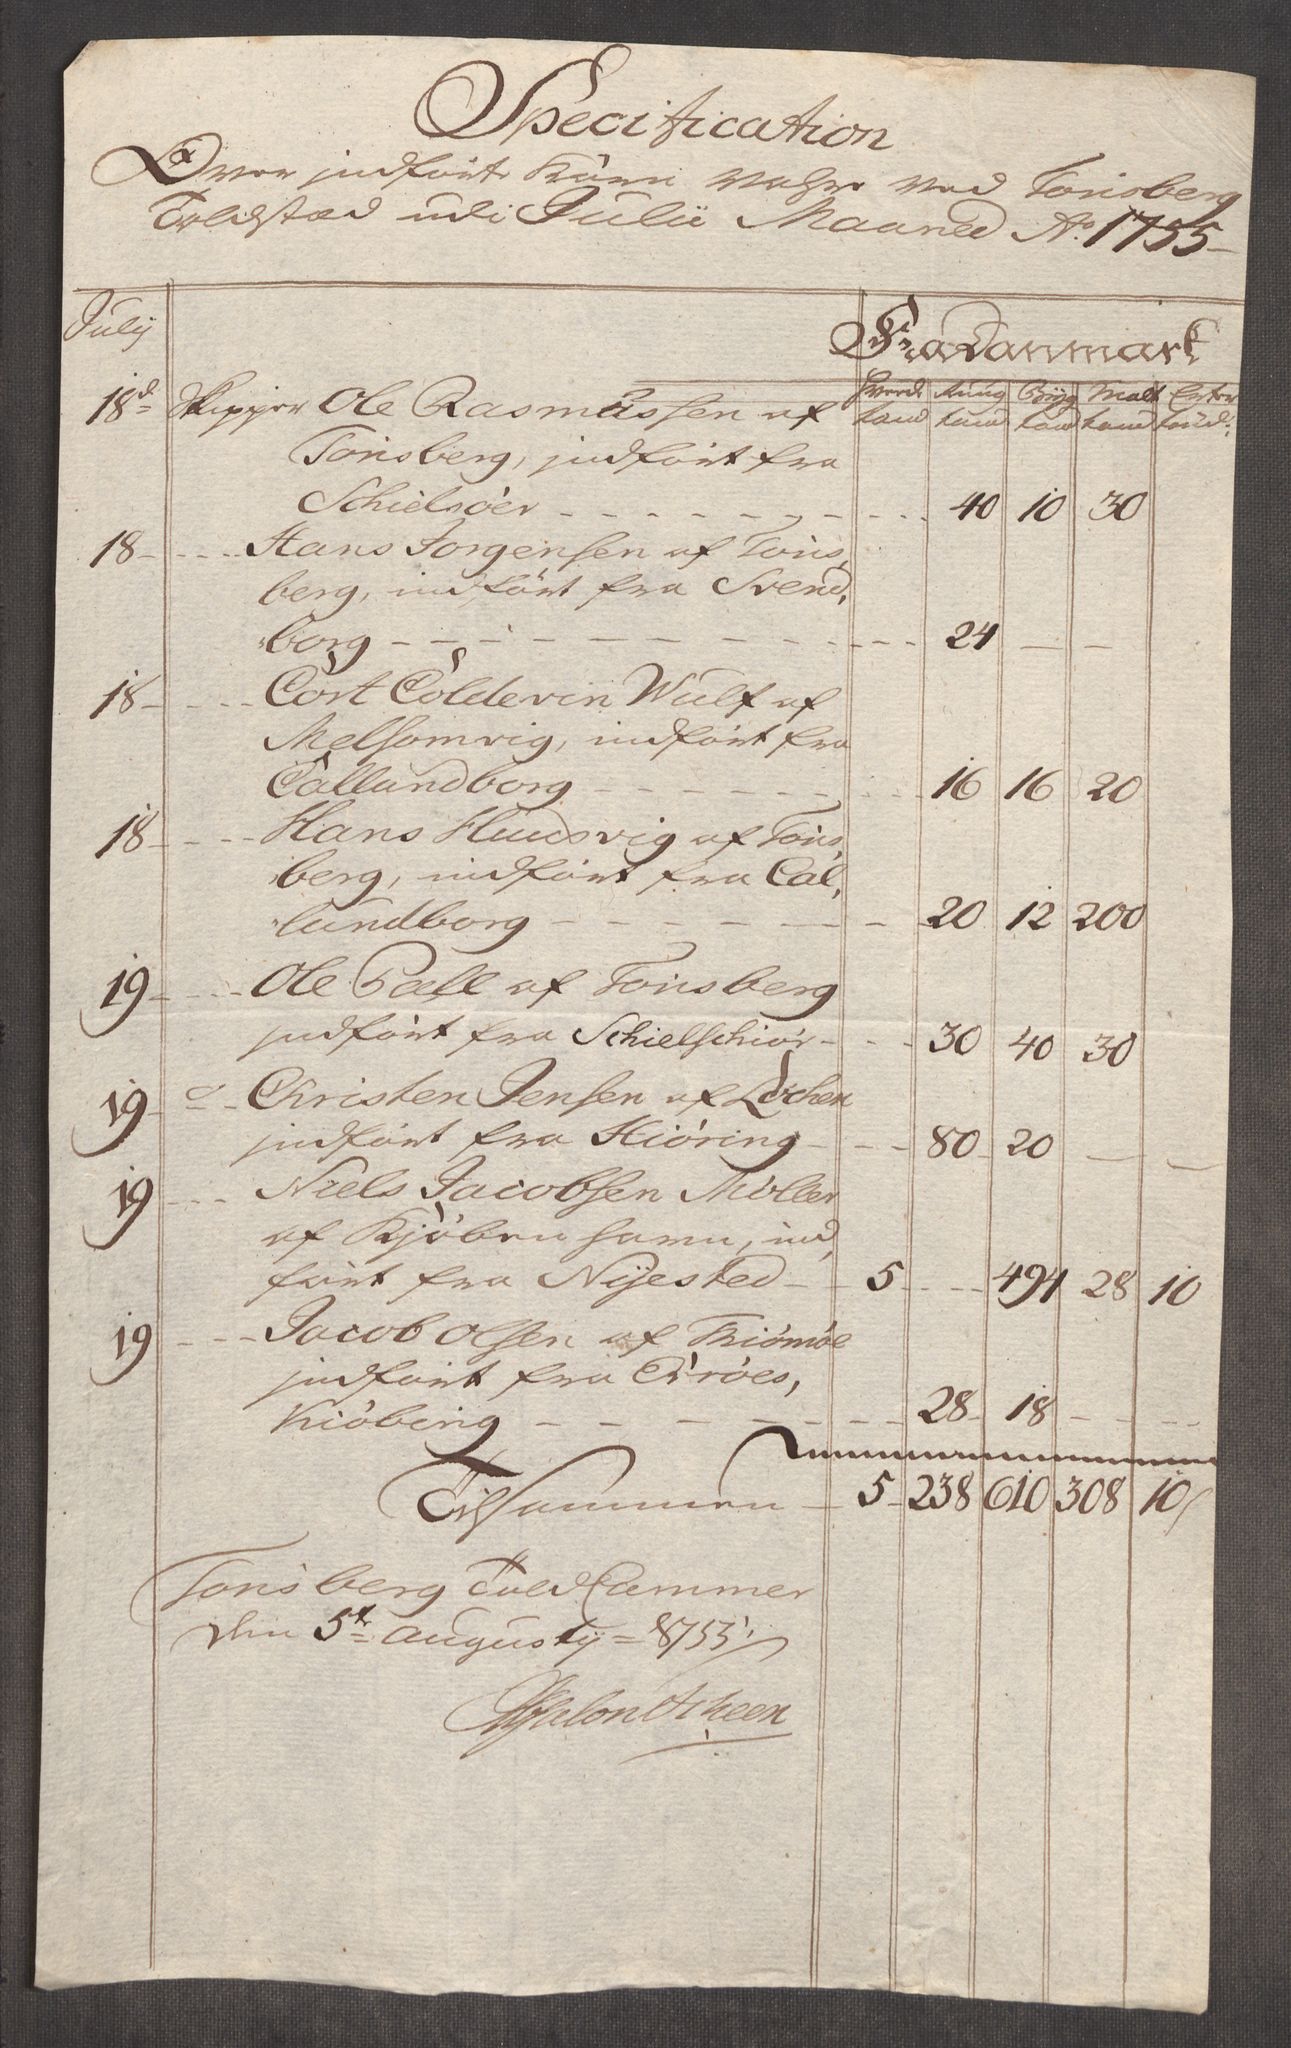 Specification
Over indførte Korn Vahre ved Tønsberg
Toldstæd udi Julii Maaned Ao. 1755
July
Fra Danmark
Hvede Rug Byg Malt Erter
tønd tønd tønd tønd tønd:
18d Skipper Ole Rasmussen af
Tønsberg, indført fra
Schielsøer - - - 40 10 30
18 - - - Hans Jørgensen af Tøns,
berg, indført fra Svend,
borg - - - 24 — —
18 - - - Cort Coldevin Wulf af
Melsomvig, indført fra
Callundborg - - - 16 16 20
18 - - - Hans Huusvig af Tøns,
berg, indført fra Cal,
lundborg - - - 20 12 200
19 - - - Ole Pall af Tønsberg
indført fra Schielschiør - - - 30 40 30
19 - - - Christen Jensen af Løchen
indført fra Hiøring - - - 80 20 — —
19 - - - Niels Jacobsen Møller
af Kjøbenhavn, ind,
ført fra Nyested - - 5 - - - 494 28 10
19 - - - Jacob Olsen af Thiømøe
indført fra Ærøes,
kiøbing - - - 28 18 - - -
Tilsammen - 5 - 238 610 308 10/
Tønsberg Told Cammer
den 5te Augusty = 1755